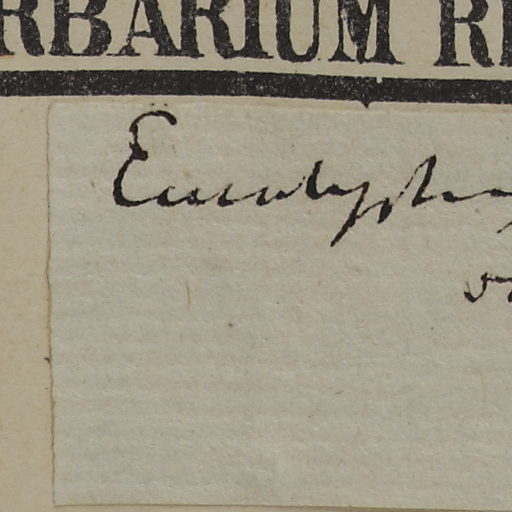 RBARIUM RE
Eucalyptus